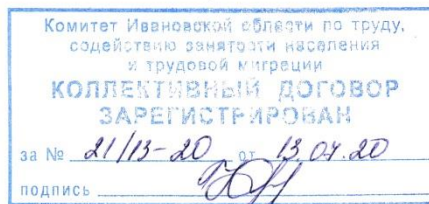 Комитет Ивановской области по труду,
содействию занятости населения
и трудовой миграции
КОЛЛЕКТИВНЫЙ ДОГОВОР
ЗАРЕГИСТРИРОВАН
за № 21/13-20 от 13.04.20
подпись